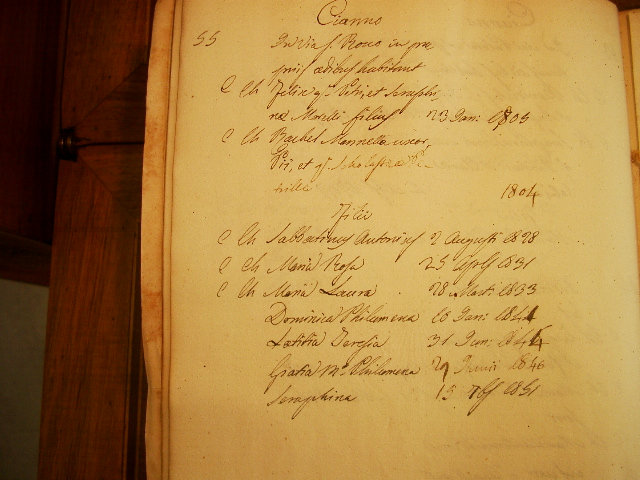 Cianno
55 In Via S. Rocco in pro
priis ædibus habitant
C Ch Felix q.m Petri, et Seraphi-
næ Morelli filius 23 Jan: 1805
C Ch Rachel Mannella uxor,
et q.m Scholastica
1804
Filii
C Ch Sabbatinus Antonius 2 Augusti 1828
C Ch Maria Rosa 25 Aprlis 1831
C Ch Maria Laura 28 1833
Dominica Philumena 10 Jan: 1841
Lætitia Teresia 31 Jan: 1844
Gratia M.a Philomena 29 Junii 1846
Seraphina 15 7bris 1851